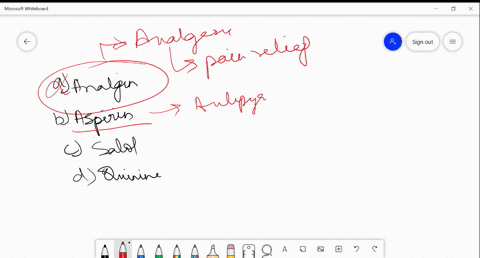 Microsoft Whiteboard
Sign out
Analgesic
pain relief
a) Analgin
b) Aspirin
Antipya
c) Salol
d) Quinine
A